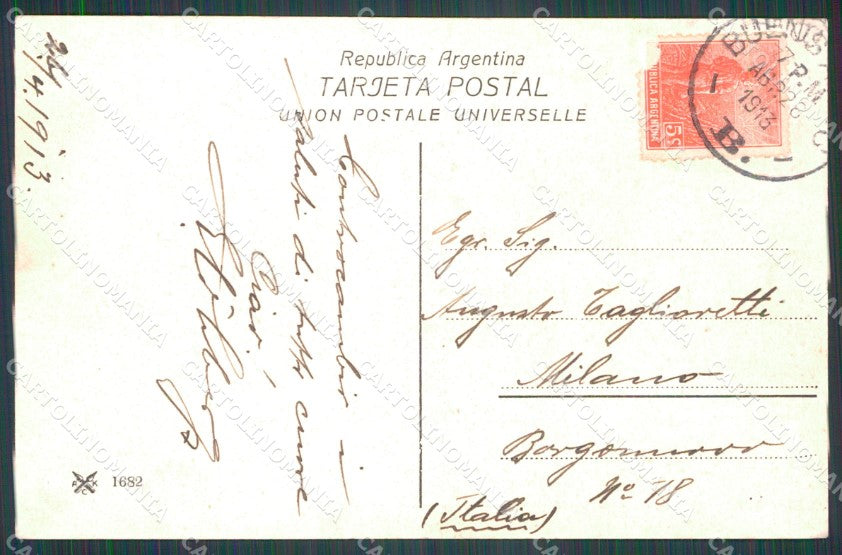 Republica Argentina
TARJETA POSTAL
UNION POSTALE UNIVERSELLE
REPUBLICA ARGENTINA
5
BUENOS
7 P.M
ABR 28
1913
B.
1913.
Contracambio i
saluti di tutto cuore
Ciao!
Egr. Sig.
Augusto Tagliaretti
Milano
Borgonuovo
No 18
(Italia)
1682
CARTOLINOMANIA